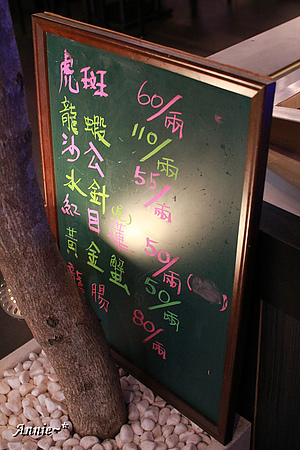 虎斑 60/兩
龍蝦 110/兩
沙公 55/兩
水針
紅目 50/兩
黃金蟹 50/兩
腸 80/兩
Annie~*